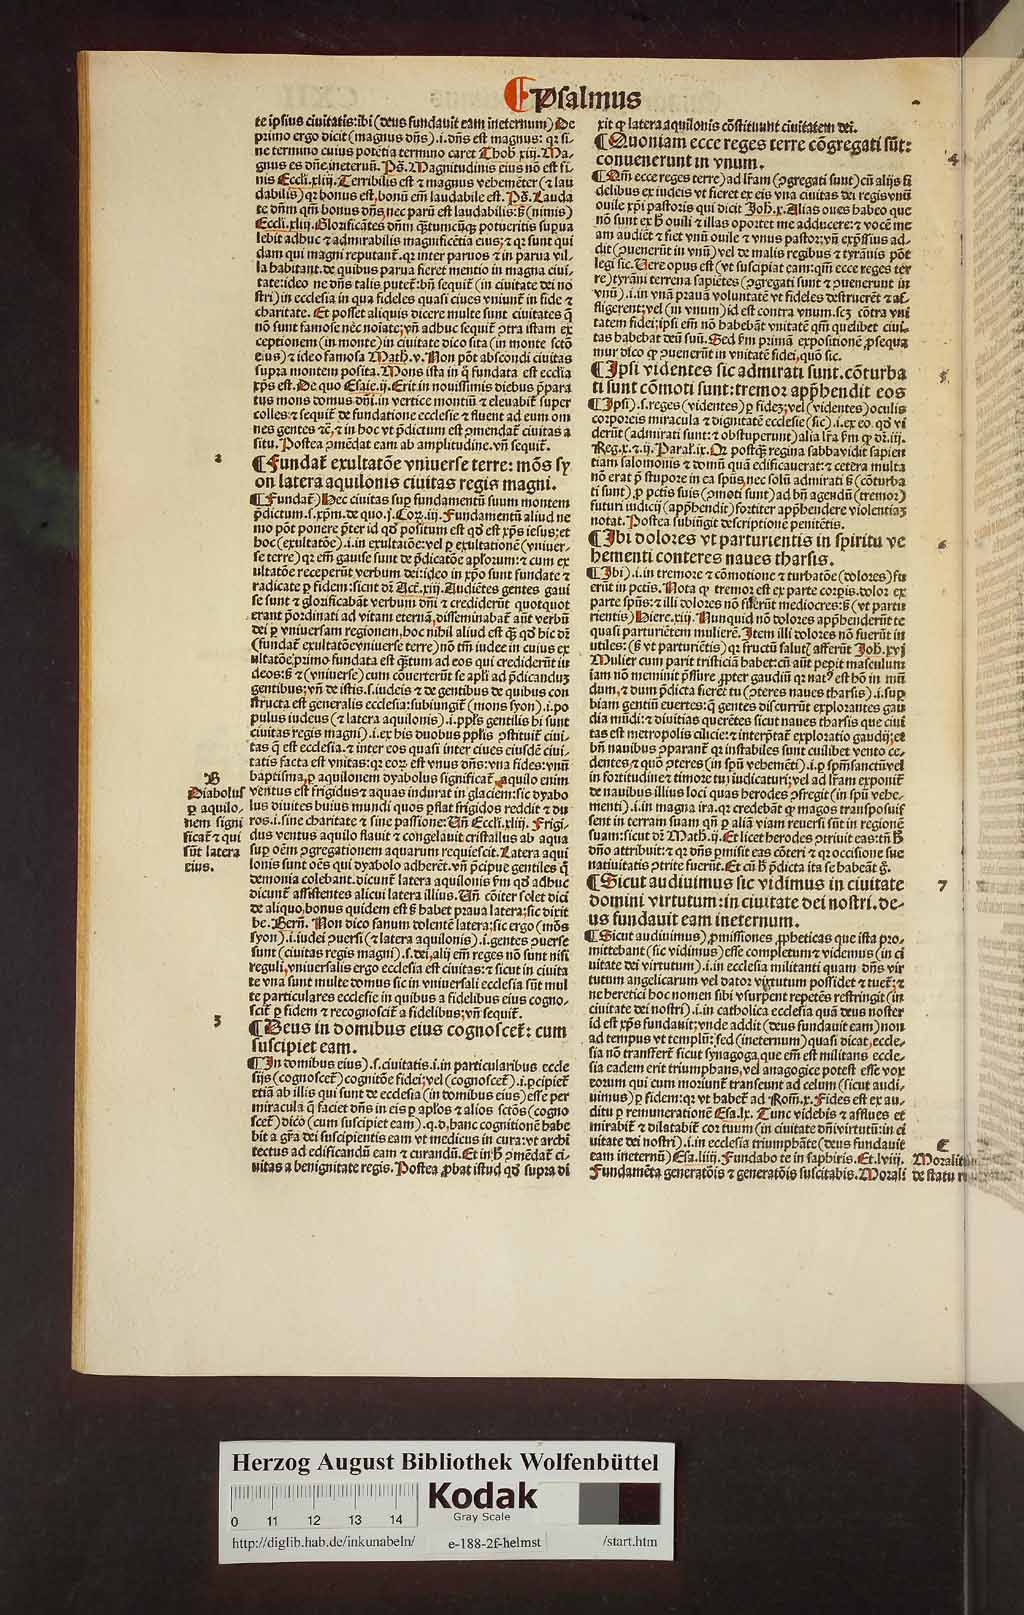 Psalmus
te ipsius ciuitatis: ibi (deus fundauit eam ineternum) De
primo ergo dicit (magnus dñs) .i. dñs est magnus: qꝛ si-
ne termino cuius potẽtia termino caret Thob. xiij. Ma-
gnus es dñe ineternũ. Pš. Magnitudinis eius nõ est fi-
nis Eccli. xliij. Terribilis est ⁊ magnus vehemẽter (⁊ lau
dabilis) qꝛ bonus est, bonũ em̃ laudabile est. Pš. Lauda
te dñm qm̃ bonus dñs, nec parũ est laudabilis: sꝫ (nimis)
Eccli. xliij. Glorificãtes dñm quãtumcũqꝫ potueritis supua
lebit adhuc ⁊ admirabilis magnificẽtia eius; ⁊ qꝛ sunt qui
dam qui magni reputant̃. qꝛ inter paruos ⁊ in parua vil-
la habitant. de quibus parua fieret mentio in magna ciui-
tate: ideo ne dñs talis putet̃: bñ sequit̃ (in ciuitate dei no
stri) in ecclesia in qua fideles quasi ciues vniunt̃ in fide ⁊
charitate. Et posset aliquis dicere multe sunt ciuitates q̃
nõ sunt famose nec noiate; vñ adhuc sequit̃ ꝯtra istam ex
ceptionem (in monte) in ciuitate dico sita (in monte sctõ
eius) ⁊ ideo famosa Math. v. Non põt abscondi ciuitas
supra montem posita. Mons ista in q̃ fundata est ecclia
xp̃s est. De quo Esaie. ij. Erit in nouissimis diebus p̃para
tus mons domus dñi in vertice montiũ ⁊ eleuabit̃ super
colles: ⁊ sequit̃ de fundatione ecclesie ⁊ fluent ad eum om
nes gentes ⁊c̃, ⁊ in hoc vt p̃dictum est ꝯmendat̃ ciuitas a
situ. Postea ꝯmẽdat eam ab amplitudine. vñ sequit̃.
2
¶ Fundat̃ exultatõe vniuerse terre: mõs sy
on latera aquilonis ciuitas regis magni.
¶ Fundat̃) Hec ciuitas sup fundamentũ suum montem
p̃dictum. s. xp̃m. de quo. j. Cor. iij. Fundamentũ aliud ne
mo põt ponere p̃ter id qd̃ positum est qd̃ est xp̃s iesus; et
hoc (exultatõe) .i. in exultatiõe: vel ꝑ exultationẽ (vniuer-
se terre) qꝛ em̃ gauise sunt de p̃dicatõe aplorum: ⁊ cum ex
ultatõe receperũt verbum dei: ideo in xp̃o sunt fundate ⁊
radicate ꝑ fidem: sicut dr̃ Act̃. xiij. Audiẽtes gentes gaui
se sunt ⁊ glorificabãt verbum dñi ⁊ crediderũt quotquot
erant p̃ordinati ad vitam eternã, disseminabat̃ aũt verbũ
dei ꝑ vniuersam regionem, hoc nihil aliud est q̃ꝫ qd̃ hic dr̃
(fundat̃ exultatõe vniuerse terre) nõ tm̃ iudee in cuius ex
ultatõe primo fundata est q̃ꝫtum ad eos qui crediderũt iu
deos: sꝫ ⁊ (vniuerse) cum cõuerterũt se apli ad p̃dicanduꝫ
gentibus; vñ de istis. s. iudeis ⁊ de gentibus de quibus con
structa est generalis ecclesia: subiungit̃ (mons syon) .i. po
pulus iudeus (⁊ latera aquilonis) .i. ppls gentilis hi sunt
ciuitas regis magni) .i. ex his duobus pplis ꝯstituit̃ ciui-
tas q̃ est ecclesia. ⁊ inter eos quasi inter ciues eiusdẽ ciui-
tatis facta est vnitas: qꝛ eoꝝ est vnus dñs: vna fides: vnũ
baptisma, ꝑ aquilonem dyabolus significat̃. aquilo enim
ventus est frigidus ⁊ aquas indurat in glaciem: sic dyabo
lus diuites huius mundi quos pflat frigidos reddit ⁊ du
ros. i. sine charitate ⁊ sine passione: Vñ Eccli. xliij. Frigi-
dus ventus aquilo flauit ⁊ congelauit cristallus ab aqua
sup oẽm ꝯgregationem aquarum requiescit. Latera aqui
lonis sunt oẽs qui dyabolo adherẽt. vñ p̃cipue gentiles q̃
demonia colebant. dicunt̃ latera aquilonis fm̃ qd̃ adhuc
dicunt̃ assistentes alicui latera illius. Vñ cõiter solet dici
de aliquo, bonus quidem est sꝫ habet praua latera; sic dixit
be. Berñ. Non dico sanum dolente latera; sic ergo (mõs
syon) .i. iudei ꝯuersi (⁊ latera aquilonis) .i. gentes ꝯuerse
sunt (ciuitas regis magni) .s. dei, alij em̃ reges nõ sunt nisi
reguli, vniuersalis ergo ecclesia est ciuitas: ⁊ sicut in ciuita
te vna sunt multe domus sic in vniuersali ecclesia sũt mul
te particulares ecclesie in quibus a fidelibus eius cogno-
scit̃ ꝑ fidem ⁊ recognoscit̃ a fidelibus; vñ sequit̃.
3
¶ Deus in domibus eius cognoscet̃: cum
suscipiet eam.
¶ In domibus eius) .s. ciuitatis. i. in particularibus eccle
sijs (cognoscet̃) cognitõe fidei; vel (cognoscet̃) .i. pcipiet̃
etiã ab illis qui sunt de ecclesia (in domibus eius) esse per
miracula q̃ faciet dñs in eis ꝑ aplos ⁊ alios sctõs (cogno
scet̃) dico (cum suscipiet eam) .q. d, hanc cognitionẽ habe
bit a gr̃a dei suscipientis eam vt medicus in cura: vt archi
tectus ad edificandũ eam ⁊ curandũ. Et in hꝫ ꝯmẽdat̃ ci-
uitas a benignitate regis. Postea ꝓbat istud qd̃ supra di
B
Diabolus
ꝑ aquilo-
nem signi
ficat̃ ⁊ qui
sũt latera
eius.
xit ꝙ latera aquilonis cõstituunt ciuitatem dei.
4
¶ Quoniam ecce reges terre cõgregati sũt:
conuenerunt in vnum.
¶ Qm̃ ecce reges terre) ad lr̃am (ꝯgregati sunt) cũ alijs fi
delibus ex iudeis vt fieret ex eis vna ciuitas dei regis vnũ
ouile xp̃i pastoris qui dicit Joh. x. Alias oues habeo que
nõ sunt ex hꝫ ouili ⁊ illas oportet me adducere: ⁊ vocẽ me
am audiẽt ⁊ fiet vnũ ouile ⁊ vnus pastor; vñ exp̃ssius ad-
dit (ꝯuenerũt in vnũ) vel de malis regibus ⁊ tyrãnis põt
legi sic. Vere opus est (vt suscipiat eam: qm̃ ecce reges ter
re) tyrãni terrena sapiẽtes (ꝯgregati sunt ⁊ ꝯuenerunt in
vnũ) .i. in vnã prauã voluntatẽ vt fideles destruerẽt ⁊ af-
fligerent; vel (in vnum) id est contra vnum. scꝫ cõtra vni
tatem fidei; ipsi em̃ nõ habebãt vnitatẽ qm̃ quelibet ciui-
tas habebat deũ suũ. Sed fm̃ primã expositionẽ ꝓsequa
mur dico ꝙ ꝯuenerũt in vnitatẽ fidei, quõ sic.
5
¶ Ipsi videntes sic admirati sunt. cõturba
ti sunt cõmoti sunt: tremor app̃hendit eos
¶ Ipsi) .s. reges (videntes) ꝑ fideꝫ; vel (videntes) oculis
corporeis miracula ⁊ dignitatẽ ecclesie (sic) .i. ex eo. qd̃ vi
derũt (admirati sunt: ⁊ obstuperunt) alia lr̃a fm̃ ꝙ dr̃. iij.
Reg. x. ⁊. ij. Paral. ix. Qꝛ postq̃ꝫ regina sabba vidit sapien
tiam salomonis ⁊ domũ quã edificauerat: ⁊ cetera multa
nõ erat p̃ stupore in ea spũs, nec solũ admirati sꝫ (cõturba
ti sunt) ꝑ pctis suis (ꝯmoti sunt) ad bñ agendũ (tremor)
futuri iudicij (apphendit) fortiter apphendere violentiaꝫ
notat. Postea subiũgit descriptionẽ penitẽtis.
6
¶ Ibi dolores vt parturientis in spiritu ve
hementi conteres naues tharsis.
¶ Ibi) .i. in tremore ⁊ cõmotione ⁊ turbatõe (dolores) fu
erũt in pctis. Nota ꝙ tremor est ex parte corpis. dolor ex
parte spũs: ⁊ illi dolores nõ fuerũt mediocres: sꝫ (vt partu
rientis) Hiere. xiij. Nunquid nõ dolores apphenderũt te
quasi parturiẽtem mulierẽ. Item illi dolores nõ fuerũt in
utiles: (sꝫ vt parturiẽtis) qꝛ fructũ salut̃ afferũt Joh. xvj
Mulier cum parit tristiciã habet: cũ aũt peperit masculum
iam nõ meminit p̃ssure ꝓpter gaudiũ qꝛ natꝰ est hõ in mũ
dum, ⁊ dum p̃dicta fierẽt tu (ꝯteres naues tharsis) .i. sup
biam gentiũ euertes: q̃ gentes discurrũt explorantes gau
dia mũdi: ⁊ diuitias querẽtes sicut naues tharsis que ciui
tas est metropolis cilicie: ⁊ interp̃tat̃ exploratio gaudij; et
bñ nauibus ꝯparant̃ qꝛ instabiles sunt cuilibet vento ce-
dentes ⁊ quõ ꝯteres (in spũ vehemẽti) .i. ꝑ spm̃sanctũ vel
in fortitudine ⁊ timore tui iudicaturi; vel ad lr̃am exponit̃
de nauibus illius loci quas herodes ꝯfregit (in spũ vehe-
menti) .i. in magna ira. qꝛ credebat̃ ꝙ magos transposuis
sent in terram suam qñ ꝑ aliã viam reuersi sũt in regionẽ
suam: sicut dr̃ Math. ij. Et licet herodes ꝯtriuit eas: tñ hꝫ
dño attribuit̃: ⁊ qꝛ dñs p̃misit eas cõteri ⁊ qꝛ occisione sue
natiuitatis ꝯtrite fuerũt. Et cũ hꝫ p̃dicta ita se habeãt g̃.
7
¶ Sicut audiuimus sic vidimus in ciuitate
domini virtutum: in ciuitate dei nostri. de-
us fundauit eam ineternum.
¶ Sicut audiuimus) ꝓmissiones ꝓpheticas que ista pro-
mittebant (sic vidimus) esse completum ⁊ videmus (in ci
uitate dei virtutum) .i. in ecclesia militanti quam dñs vir
tutum angelicarum vel dator virtutum possidet ⁊ tuet̃; ⁊
ne heretici hoc nomen sibi vsurpent repetẽs restringit (in
ciuitate dei nostri) .i. in catholica ecclesia quã deus noster
id est xp̃s fundauit; vnde addit (deus fundauit eam) non
ad tempus vt templũ: sed (ineternum) quasi dicat, eccle-
sia nõ transfert̃ sicut synagoga, que em̃ est militans eccle-
sia eadem erit triumphans, vel anagogice potest esse vox
eorum qui cum moriunt̃ transeunt ad celum (sicut audi-
uimus) ꝑ fidem: qꝛ vt habet̃ ad Rom̃. x. Fides est ex au-
ditu ꝑ remunerationẽ Esa. lx. Tunc videbis ⁊ afflues et
mirabit̃ ⁊ dilatabit̃ cor tuum (in ciuitate dñi virtutũ: in ci
uitate dei nostri) .i. in ecclesia triumphãte (deus fundauit
eam ineternũ) Esa. liiij. Fundabo te in saphiris. Et. lviij.
Fundamẽta generatõis ⁊ generatõis suscitabis. Morali
C
de statu
Herzog August Bibliothek Wolfenbüttel
Kodak
Gray Scale
0 11 12 13 14
http://diglib.hab.de/inkunabeln/ e-188-2f-helmst /start.htm